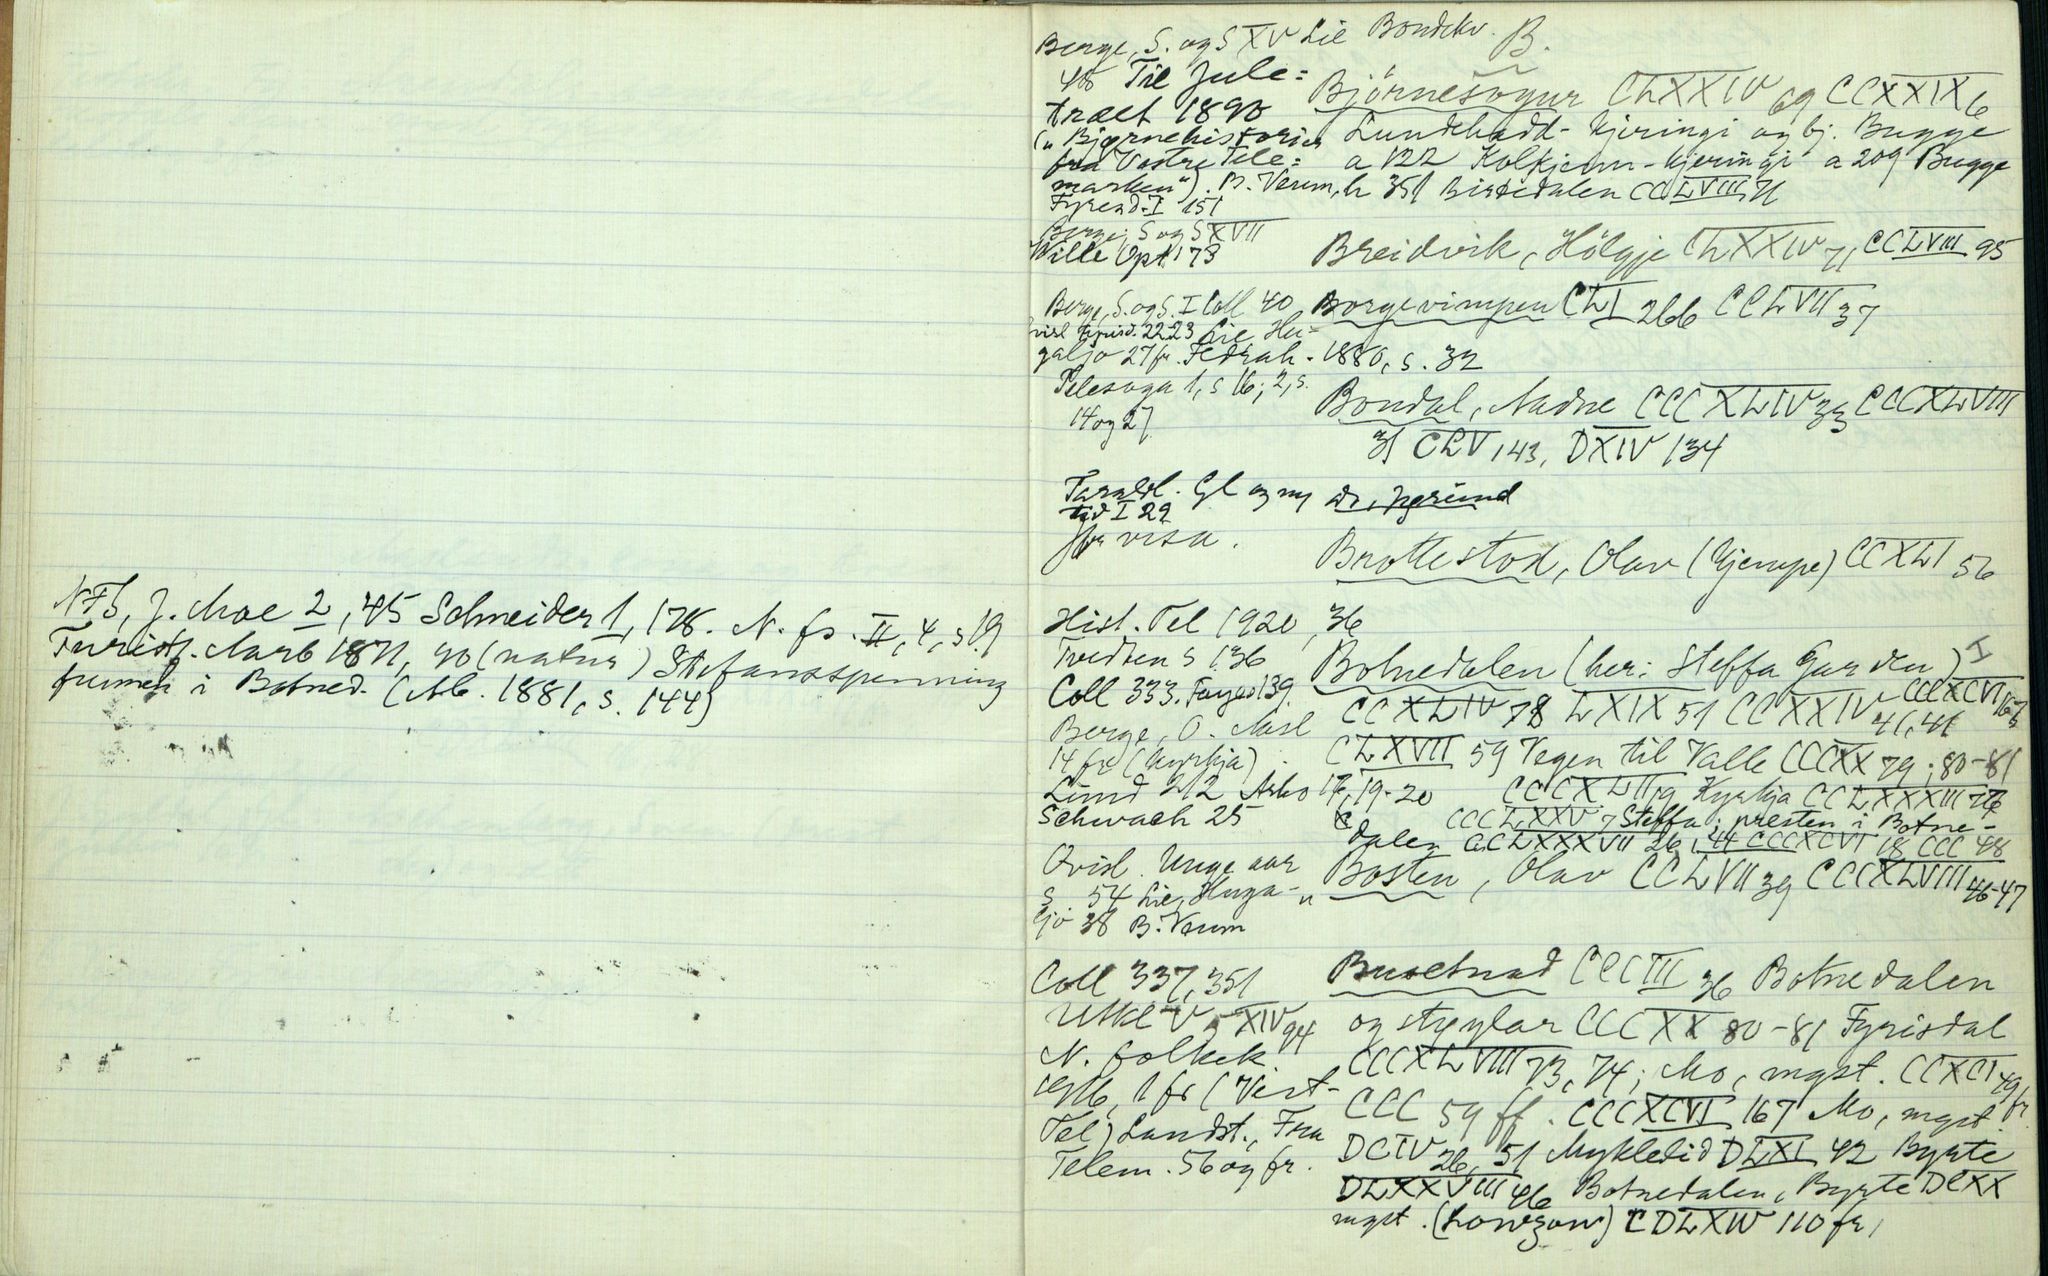 NFS, J. Moe 2, 45 Schneider 1, 178. N. fs. II, 4, s. 19
Turistf. Aarb 1871, 90 (natur) Stefansspenning
funnen i Botned. (Ab. 1881, s. 144)
B.
Berge, S. og S XV Lie Bondekv.
46 Til Jule=
træet 1890
(„Bjørnehistorier
fra Vestre Tele=
marken“). B. Verum, h 351
Fyresd. I 151
Berge, S og S XVII
Wille Opt. 173
Bjørnesogur CLXXIV 69 CCXXIX 6
Lundehadd-kjeringi og bj. Bugge
a 122 Kolkjenn-kjeringi a 209 Bugge
Bistedalen CCLVIII 71
Breidvik, Hölgje CLXXIV 71, CCLVIII 95
Berge, S. og S. I Coll 40
Qvisl Fyrisd. 22-23 Lie Hu-
galjo 27 fr. Fedrah. 1880, s. 32
Telesoga 1, s 16; 2, s.
14 og 27
Borgevimpen CLI 266 CCLVII 37
Bondal, Aadne CCCXLIV 33 CCCXLVIII
31 CLV 143, DXIV 134
Taraldl. Gl og ny
tid I 29
for visa.
Brottestod, Olav (Kjempe) CCXLI 56
Hist. Tel 1920, 36
Tvedten s 136
Coll 333. Faye s 139
Berge, O. Aasl
14 fr (kyrkja)
Lund 212 Asbo 17, 19-20
Schwach 25
Botnedalen (her: Steffa Garden) I
CCXLIV 78 LXIX 51 CCXXIV 41, 46 CCCXCVI 167
CLXVII 59 Vegen til Valle CCCXX 79; 80-81
CCCXLII 19 Kyrkja CCLXXXIII 76
CCCLXXV 7 Steffa; presten i Botne-
dalen CCLXXXVII 26, 44 CCCXCVI 18 CCC 48
Qvisl. Unge aar
s. 54 Lie, Huga-
ljo 38 B. Verum
Bosten, Olav CCLVII 39 CCCXLVIII 46-47
Coll 337, 351
Utkl V, XIV 94
N. folkek.
1916, 1 fr (Vest-
Tel) Landst., Fra
Telem. 56 og fr.
Busetnad CCCIII 36 Botnedalen
og stylar CCCXX 80-81 Fyrisdal
CCCXLVIII 73, 74; Mo, mgst. CCXCI 49 fr
CCC 59 ff. CCCXCVI 167 Mo, mgst.
DCIV 26, 51 Mykleid DLXI 42 Byrte
DLXXVIII 46 Botnedalen, Byrte DCXX
mgst. (Lowzow) CDLXIV 110 fr,